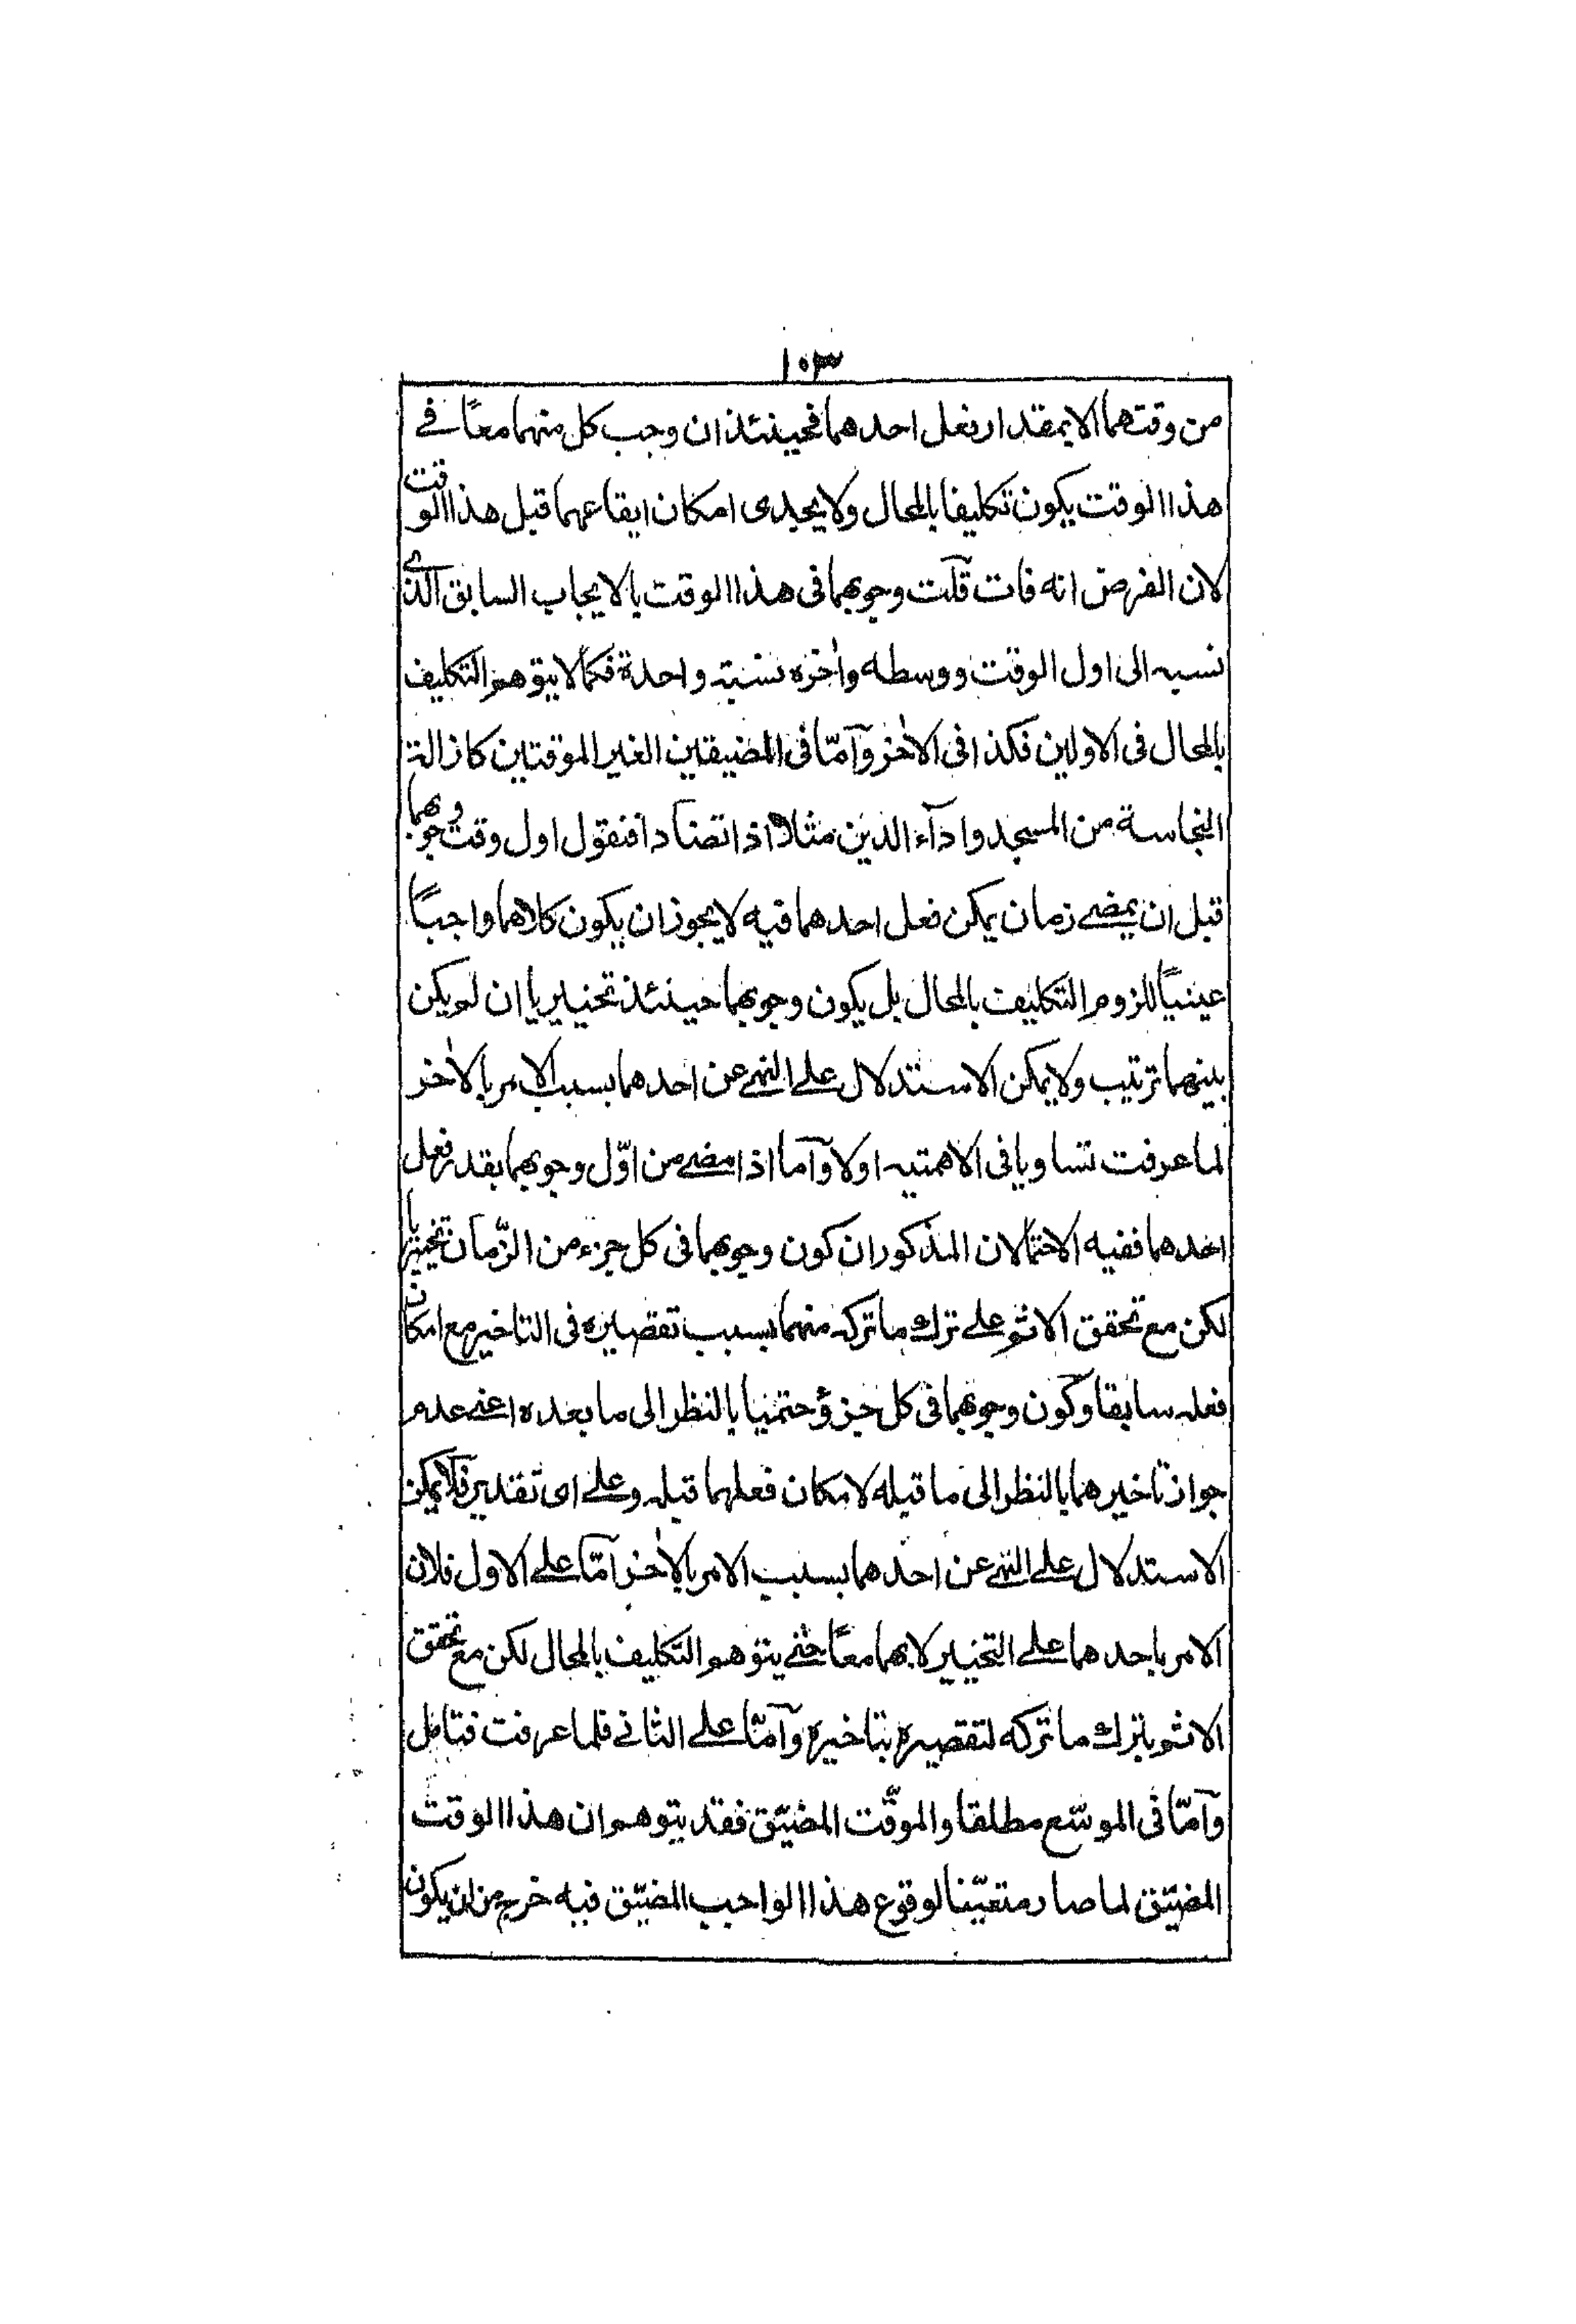 ١٠٣
من وقتهما الا بمقدار فعل احدهما فحينئذ ان وجب كل منهما معًا في
هذا الوقت يكون تكليفا بالمحال ولا يجدى امكان ايقاعهما قبل هذا الوقت
لان الفرض انه فات قلت وجوبهما فى هذا الوقت بالايجاب السابق الذي
نسبه الى اول الوقت ووسطه واٰخره نسبته واحدة فكما لا يتوهم التكليف
بالمحال فى الاولين فكذا فى الاٰخر وآمّا فى المضيقين الغير الموقتين كازالة
النجاسة من المسجد واداۤء الدين مثلا اذا تضادا فنقول اول وقت وجوبهما
قبل ان يمضے زمان يمكن فعل احدهما فيه لا يجوز ان يكون كلاهما واجبًا
عينيًا للزوم التكليف بالمحال بل يكون وجوبهما حينئذ تخييريا ان لم يكن
بينهما ترتيب ولا يمكن الاستدلال علے النهے عن احدهما بسبب الامر بالاٰخر
لما عرفت تساويا فى الاهمتيه اولا وآما اذا مضے من اوّل وجوبهما بقدر فعل
احدهما ففيه الاحتمالان المذكوران كون وجوبهما فى كل جزء من الزّمان تخييريا
لكن مع تحقق الاثم علے ترك ما تركه منهما بسبب تقصيره فى التاخير مع امكان
فعله سابقا وكون وجوبهما فى كل جزؤ حتميا بالنظر الى ما بعده اعنے عدم
جواز تاخيرهما بالنظر الى ما قبله لامكان فعلهما قبله وعلے اى تقدير فلا يمكن
الاستدلال علے النهے عن احدهما بسبب الامر بالاٰخر آمّا علے الاول فلان
الامر باحدهما علے التخيير لا بهما معًا حتے يتوهم التكليف بالمحال لكن مع تحقق
الاثم بترك ما تركه لتقصيره بتاخيره وآمّا علے الثانے فلما عرفت فتامل
وآمّا فى الموسّع مطلقا والموقّت المضيّق فقد يتوهم ان هذا الوقت
المضيّق لما صار متعيّنا لوقوع هذا الواجب المضيّق فيه خرج من ان يكون